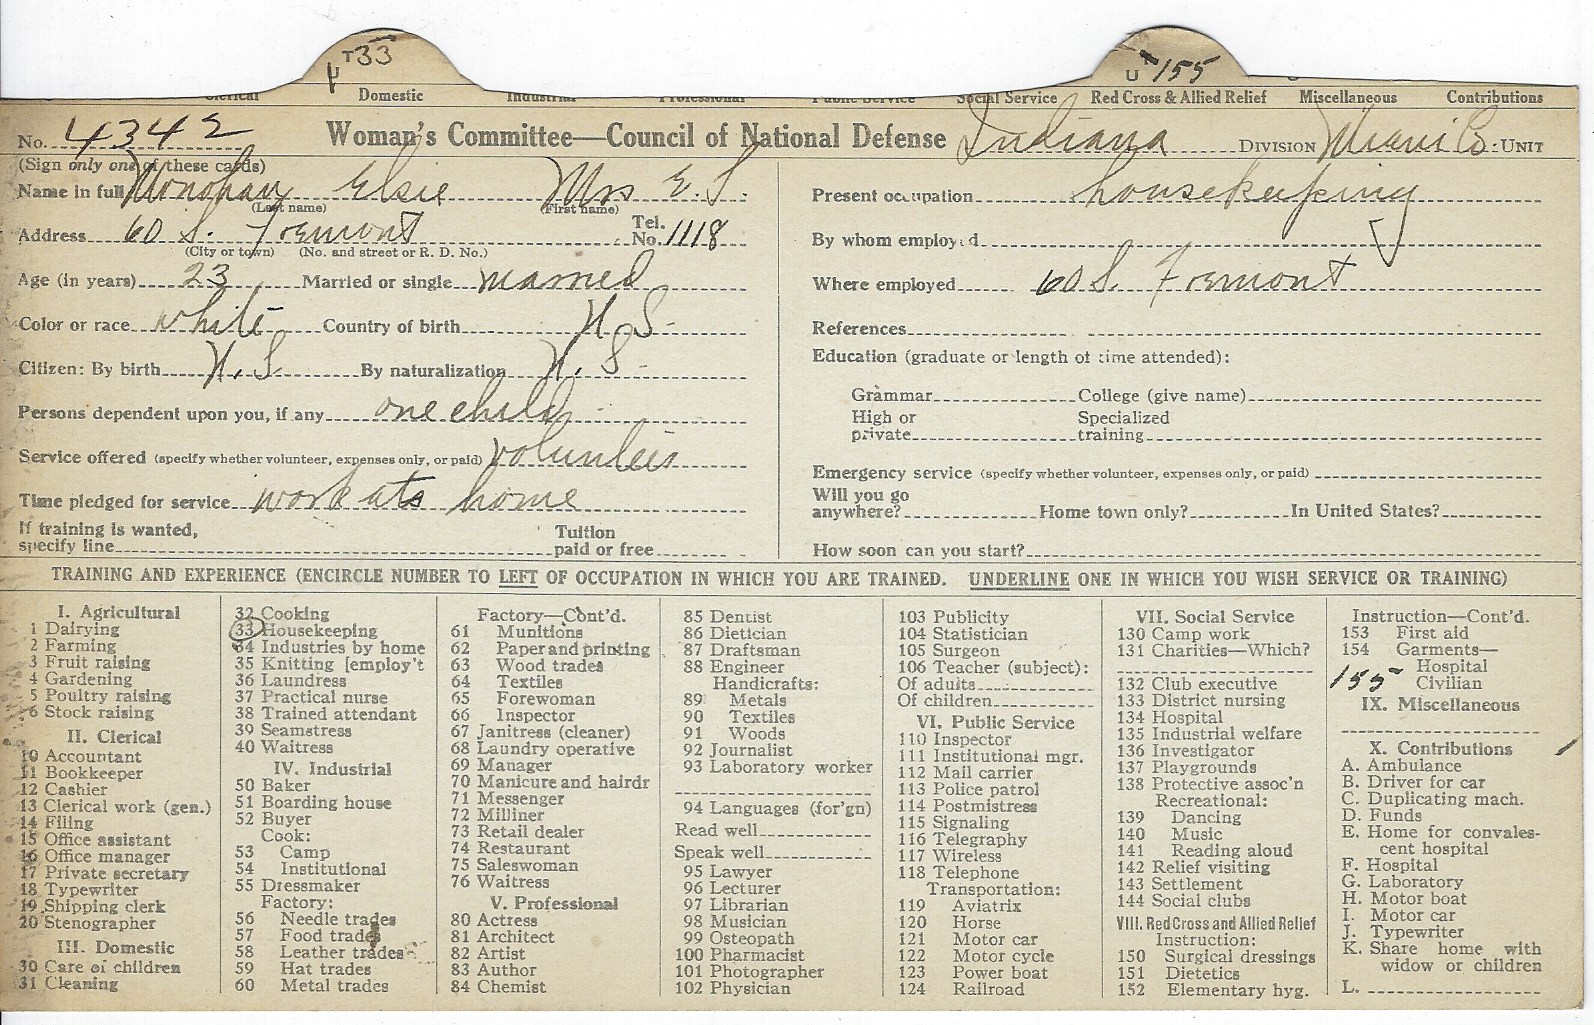 T33 U
U 155
Clerical Domestic Industrial Professional Public Service Social Service Red Cross & Allied Relief Miscellaneous Contributions
No. 4342 Woman's Committee—Council of National Defense Indiana DIVISION Miami Co. UNIT
(Sign only one of these cards)
Name in full Monohan Elsie Mrs E. S.
(Last name) (First name)
Address 60 S. Fremont Tel. No. 1118
(City or town) (No. and street or R. D. No.)
Age (in years) 23 Married or single married
Color or race white Country of birth U.S.
Citizen: By birth U.S. By naturalization U.S.
Persons dependent upon you, if any one child
Service offered (specify whether volunteer, expenses only, or paid) volunteer
Time pledged for service work at home
If training is wanted,
specify line Tuition paid or free
Present occupation housekeeping
By whom employed
Where employed 60 S. Fremont
References
Education (graduate or length of time attended):
Grammar College (give name)
High or private Specialized training
Emergency service (specify whether volunteer, expenses only, or paid)
Will you go anywhere? Home town only? In United States?
How soon can you start?
TRAINING AND EXPERIENCE (ENCIRCLE NUMBER TO LEFT OF OCCUPATION IN WHICH YOU ARE TRAINED. UNDERLINE ONE IN WHICH YOU WISH SERVICE OR TRAINING)
I. Agricultural
1 Dairying
2 Farming
3 Fruit raising
4 Gardening
5 Poultry raising
6 Stock raising
II. Clerical
10 Accountant
11 Bookkeeper
12 Cashier
13 Clerical work (gen.)
14 Filing
15 Office assistant
16 Office manager
17 Private secretary
18 Typewriter
19 Shipping clerk
20 Stenographer
III. Domestic
30 Care of children
31 Cleaning
32 Cooking
33 Housekeeping
34 Industries by home
35 Knitting [employ't
36 Laundress
37 Practical nurse
38 Trained attendant
39 Seamstress
40 Waitress
IV. Industrial
50 Baker
51 Boarding house
52 Buyer
Cook:
53 Camp
54 Institutional
55 Dressmaker
Factory:
56 Needle trades
57 Food trades
58 Leather trades
59 Hat trades
60 Metal trades
Factory—Cont'd.
61 Munitions
62 Paper and printing
63 Wood trades
64 Textiles
65 Forewoman
66 Inspector
67 Janitress (cleaner)
68 Laundry operative
69 Manager
70 Manicure and hairdr
71 Messenger
72 Milliner
73 Retail dealer
74 Restaurant
75 Saleswoman
76 Waitress
V. Professional
80 Actress
81 Architect
82 Artist
83 Author
84 Chemist
85 Dentist
86 Dietician
87 Draftsman
88 Engineer
Handicrafts:
89 Metals
90 Textiles
91 Woods
92 Journalist
93 Laboratory worker
94 Languages (for'gn)
Read well
Speak well
95 Lawyer
96 Lecturer
97 Librarian
98 Musician
99 Osteopath
100 Pharmacist
101 Photographer
102 Physician
103 Publicity
104 Statistician
105 Surgeon
106 Teacher (subject):
Of adults
Of children
VI. Public Service
110 Inspector
111 Institutional mgr.
112 Mail carrier
113 Police patrol
114 Postmistress
115 Signaling
116 Telegraphy
117 Wireless
118 Telephone
Transportation:
119 Aviatrix
120 Horse
121 Motor car
122 Motor cycle
123 Power boat
124 Railroad
VII. Social Service
130 Camp work
131 Charities—Which?
132 Club executive
133 District nursing
134 Hospital
135 Industrial welfare
136 Investigator
137 Playgrounds
138 Protective assoc'n
Recreational:
139 Dancing
140 Music
141 Reading aloud
142 Relief visiting
143 Settlement
144 Social clubs
VIII. Red Cross and Allied Relief
Instruction:
150 Surgical dressings
151 Dietetics
152 Elementary hyg.
Instruction—Cont'd.
153 First aid
154 Garments—
Hospital
155 Civilian
IX. Miscellaneous
X. Contributions
A. Ambulance
B. Driver for car
C. Duplicating mach.
D. Funds
E. Home for convales-
cent hospital
F. Hospital
G. Laboratory
H. Motor boat
I. Motor car
J. Typewriter
K. Share home with
widow or children
L.